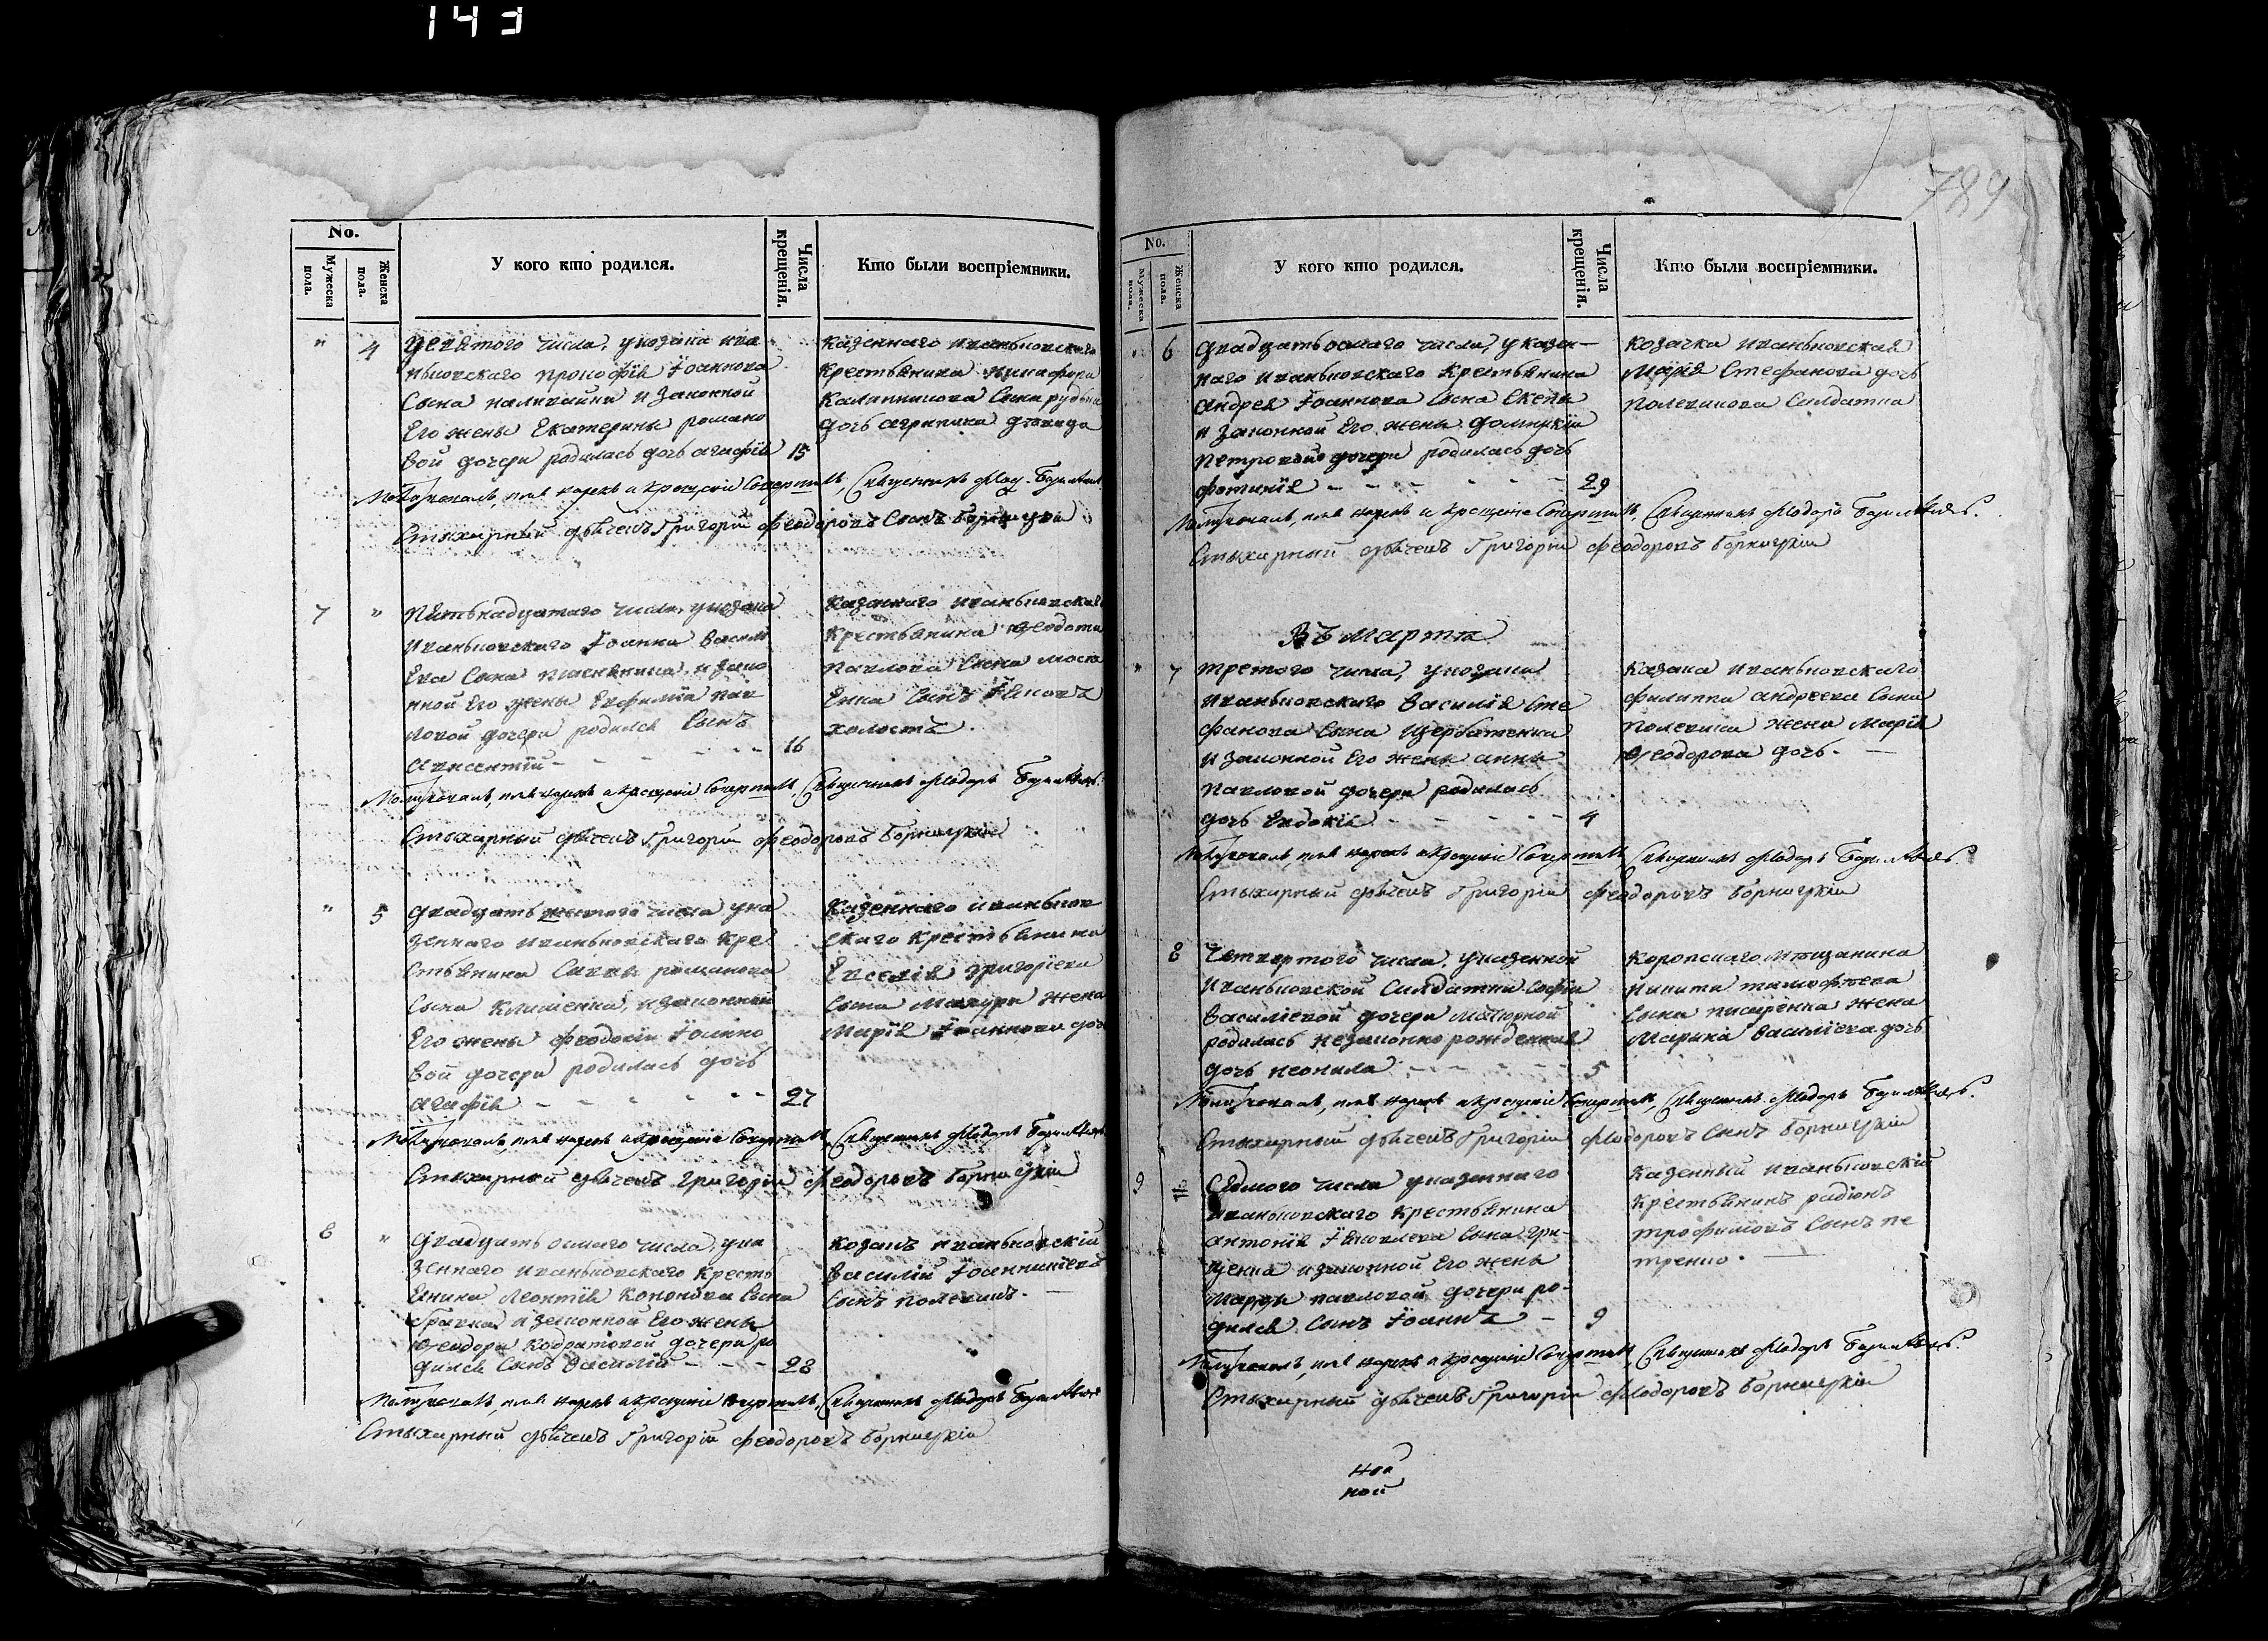 143
789
No.
Мужеска пола.
Женска пола.
У кого кто родился.
Числа крещенія.
Кто были воспріемники.
" 4
числа, у козака ива
ньковского Іоаннова
Сына и законной
Его жены Екатерины романо
вой дочери родилась дочь агафія 15
казенного иваньковского
крестьянина
Калинникова Сына
дочь агрипина девица
Молитвовалъ, имя нарекъ и крещеніе Совершилъ, Священникъ
Стыхирный дьячекъ Григорій Феодоровъ Сынъ
7 "
Пятьнадцатого числа, у козака
Иваньковского Іоанна василі
Ева Сына и зако
нной Его жены Евфиміи пав
ловой дочери родился Сынъ
авксентій - - - 16
казенного иваньковского
Крестьянина Феодота
Павлова Сына
Сынъ Іаковъ
холостъ.
Молитвовалъ, имя нарекъ и крещеніе Совершилъ, Священникъ Феодоръ
Стыхирный дьячекъ Григорій Феодоровъ
" 5
двадцать числа у ка
зенного Иваньковского Кре
стьянина Саввы романова
Сына Клименка, и законной
Его жены Феодосіи Іоанно
вой дочери родилась дочь
агафія - - - - 27
Казенного иваньков
ского Крестьянина
Евсевія григоріева
Сына мажуры жена
Марія Іоаннова дочь
Молитвовалъ, имя нарекъ и крещеніе Совершилъ, Священникъ Феодоръ
Стыхирный дьячекъ Григорій Феодоровъ
8 "
Двадцать осмаго числа, у ка
зенного иваньковского Кресть
янина Леонтія Кононова Сына
и законной Его жены
Феодоры Кодратовой дочери ро
дился Сынъ василій - - - 28
Козакъ иваньковскій
Василій
Сынъ полевикъ. —
Молитвовалъ, имя нарекъ и крещеніе Совершилъ, Священникъ Феодоръ
Стыхирный дьячекъ Григорій Феодоровъ
No.
Мужеска пола.
Женска пола.
У кого кто родился.
Числа крещенія.
Кто были воспріемники.
" 6
двадцать осмаго числа, у казен-
наго иваньковского Крестьянина
андрея Іоаннова Сына
и законной Его жены домникіи
Петровой дочери родилась дочь
фотинія - - - - - 29
Козачка иваньковская
Марія Стефанова дочь
Полевикова Салдатка
Молитвовалъ, имя нарекъ и крещеніе Совершилъ, Священникъ Феодоръ
Стыхирный дьячекъ Григорій Феодоровъ
Въ Марта
" 7
третого числа, у козака
Иваньковского Василія Сте
фанова Сына Щербатенка
и законной Его жены анны
Павловой дочери родилась
дочь Евдокія - - - - - 4
Казака иваньковскаго
филиппа андреева Сына
Полевика жена Марія
Феодорова дочь. —
Молитвовалъ, имя нарекъ и крещеніе Совершилъ, Священникъ Феодоръ
Стыхирный дьячекъ Григорій Феодоровъ
8
Четвертого числа, у казенной
Иваньковской Салдатки Софіи
василіевой дочери
родилась незаконно рожденная
дочь неонила - - - - - 5
Коропскаго мѣщанина
Никиты тимофѣева
Сына писаренка жена
Марина василіева дочь
Молитвовалъ, имя нарекъ и крещеніе Совершилъ, Священникъ Феодоръ
Стыхирный дьячекъ Григорій Феодоровъ Сынъ
9 "
Седмого числа у казенного
Иваньковского Крестьянина
антонія Іаковлева Сына Гри-
щенка и законной Его жены
Марфы павловой дочери ро-
дился Сынъ Іоаннъ - 9
Казенный иваньковскій
Крестьянинъ радіонъ
трофимовъ Сынъ пе
тренко. —
Молитвовалъ, имя нарекъ и крещеніе Совершилъ, Священникъ Феодоръ
Стыхирный дьячекъ Григорій Феодоровъ
ной